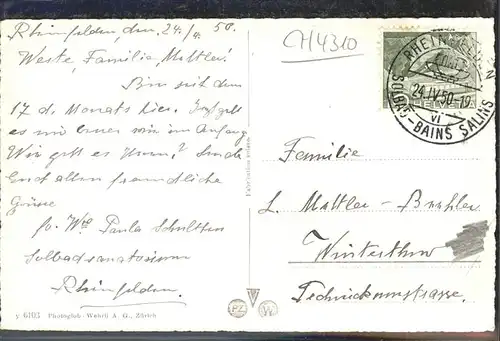 Rheinfelden, den 24./4. 50.
CH4310
Werte, Familie Mettler!
Bin seit dem
17 d. Monats hier. geht
es mir immer wie im Anfang
Wie geht es Ihnen?
Euch allen freundliche
Grüsse
fr. Wwe Paula
Solbadsanatorium
Rheinfelden.
y 6193 Photoglob-Wehrli A. G., Zürich
RHEINFELDEN
24.IV.50-19
VI
SOLBAD-BAINS SALINS
HELVETIA
Familie
L. Mettler-
Winterthur
Technikumstrasse.
PZ W